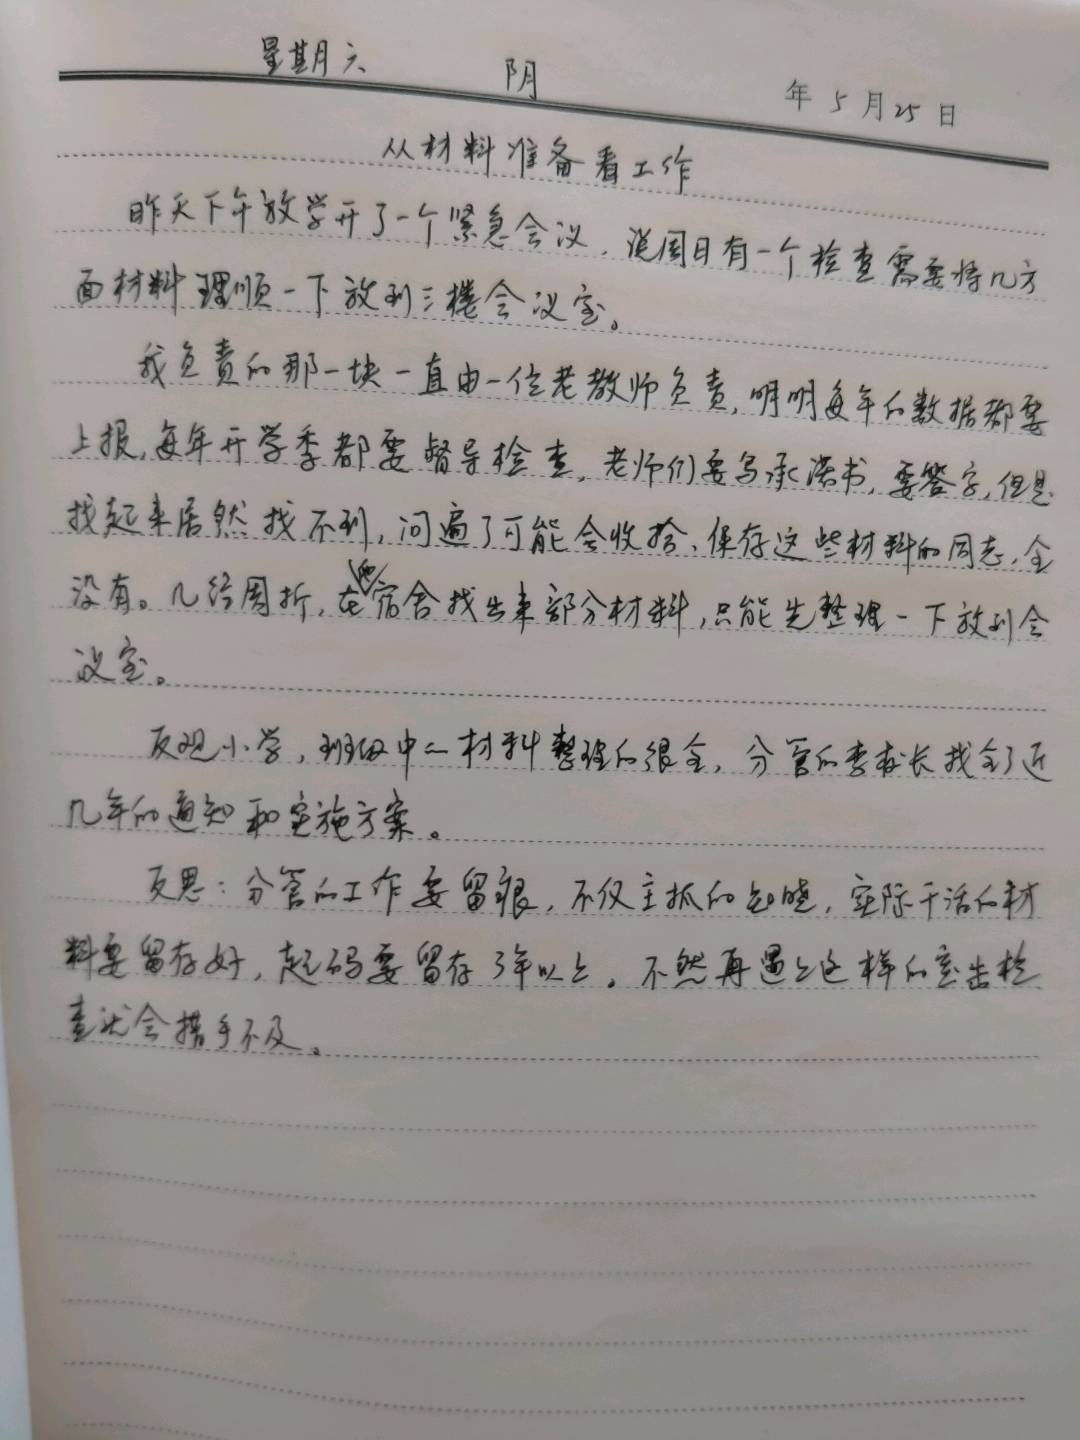 星期六 阴 年5月25日
从材料准备看工作
昨天下午放学开了一个紧急会议，说周日有一个检查需要将几方
面材料理顺一下放到三楼会议室。
我负责的那一块一直由一位老教师负责，明明每年的数据都要
上报，每年开学季都要督导检查，老师们要写承诺书，要签字，但是
找起来居然找不到，问遍了可能会收拾、保存这些材料的同志，全
没有。几经周折，在她宿舍找出来部分材料，只能先整理一下放到会
议室。
反观小学，材料整理的很全，分管的李校长找全了近
几年的通知和实施方案。
反思：分管的工作要留痕，不仅主抓的知晓，实际干活的材
料要留存好，起码要留存3年以上。不然再遇上这样的突击检
查就会措手不及。